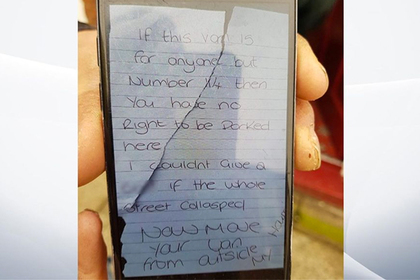 If this van is
for anyone but
Number 14 then
You have no
Right to be Parked
here
I couldnt Give a
if the whole
Street Collasped
Now Move
Your Van
From outside